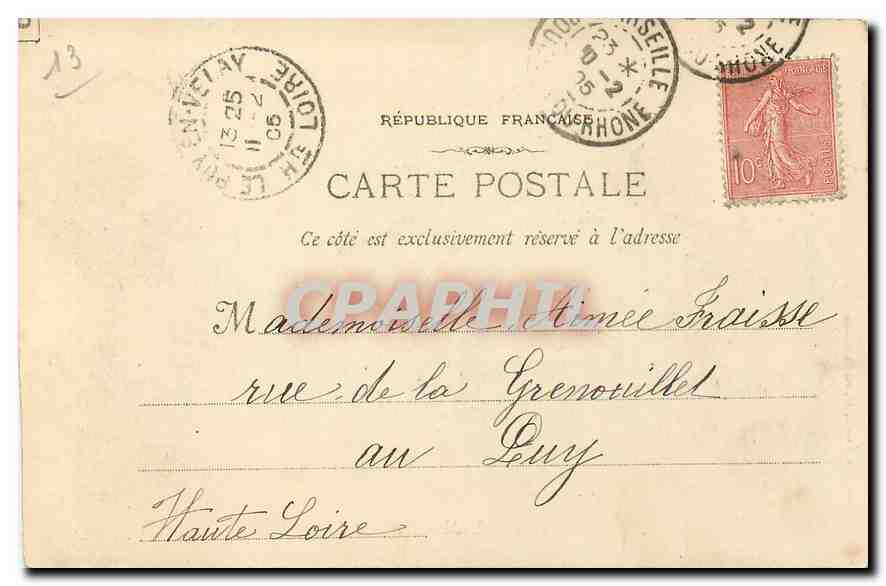 13
LE PUY-EN-VELAY
13 25
11 -2
05
Hte LOIRE
MARSEILLE
23
10 -2
05
BOUCHES-DU-RHONE
DU-RHONE
RÉPUBLIQUE FRANÇAISE
FRANÇAISE
10c
POSTES
CARTE POSTALE
Ce côté est exclusivement réservé à l'adresse
CPAPHIL
Mademoiselle Aimée Fraisse
rue de la Grenouillet
au Puy
Haute Loire